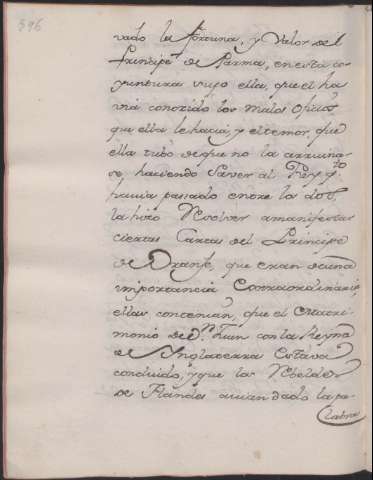 396
vado la fortuna, y Valor del
Principe de Parma, en esta co
yuntura supo ella, que el ha
via conozido los malos oficios
que ella le hacia, y el temor, que
ella tubo de que no la arruina
se, haciendo saver al Rey q.to
havia passado entre los dos,
la hizo resolver a manifestar
ciertas Cartas del Principe
de Oranje, que eran de una
importancia extraordinaria,
ellas contenian, que el Matri
monio de D.n Juan con la Reyna
de Inglaterra estava
concluido, y que los Rebeldes
de Flandes avian dado la pa
labra